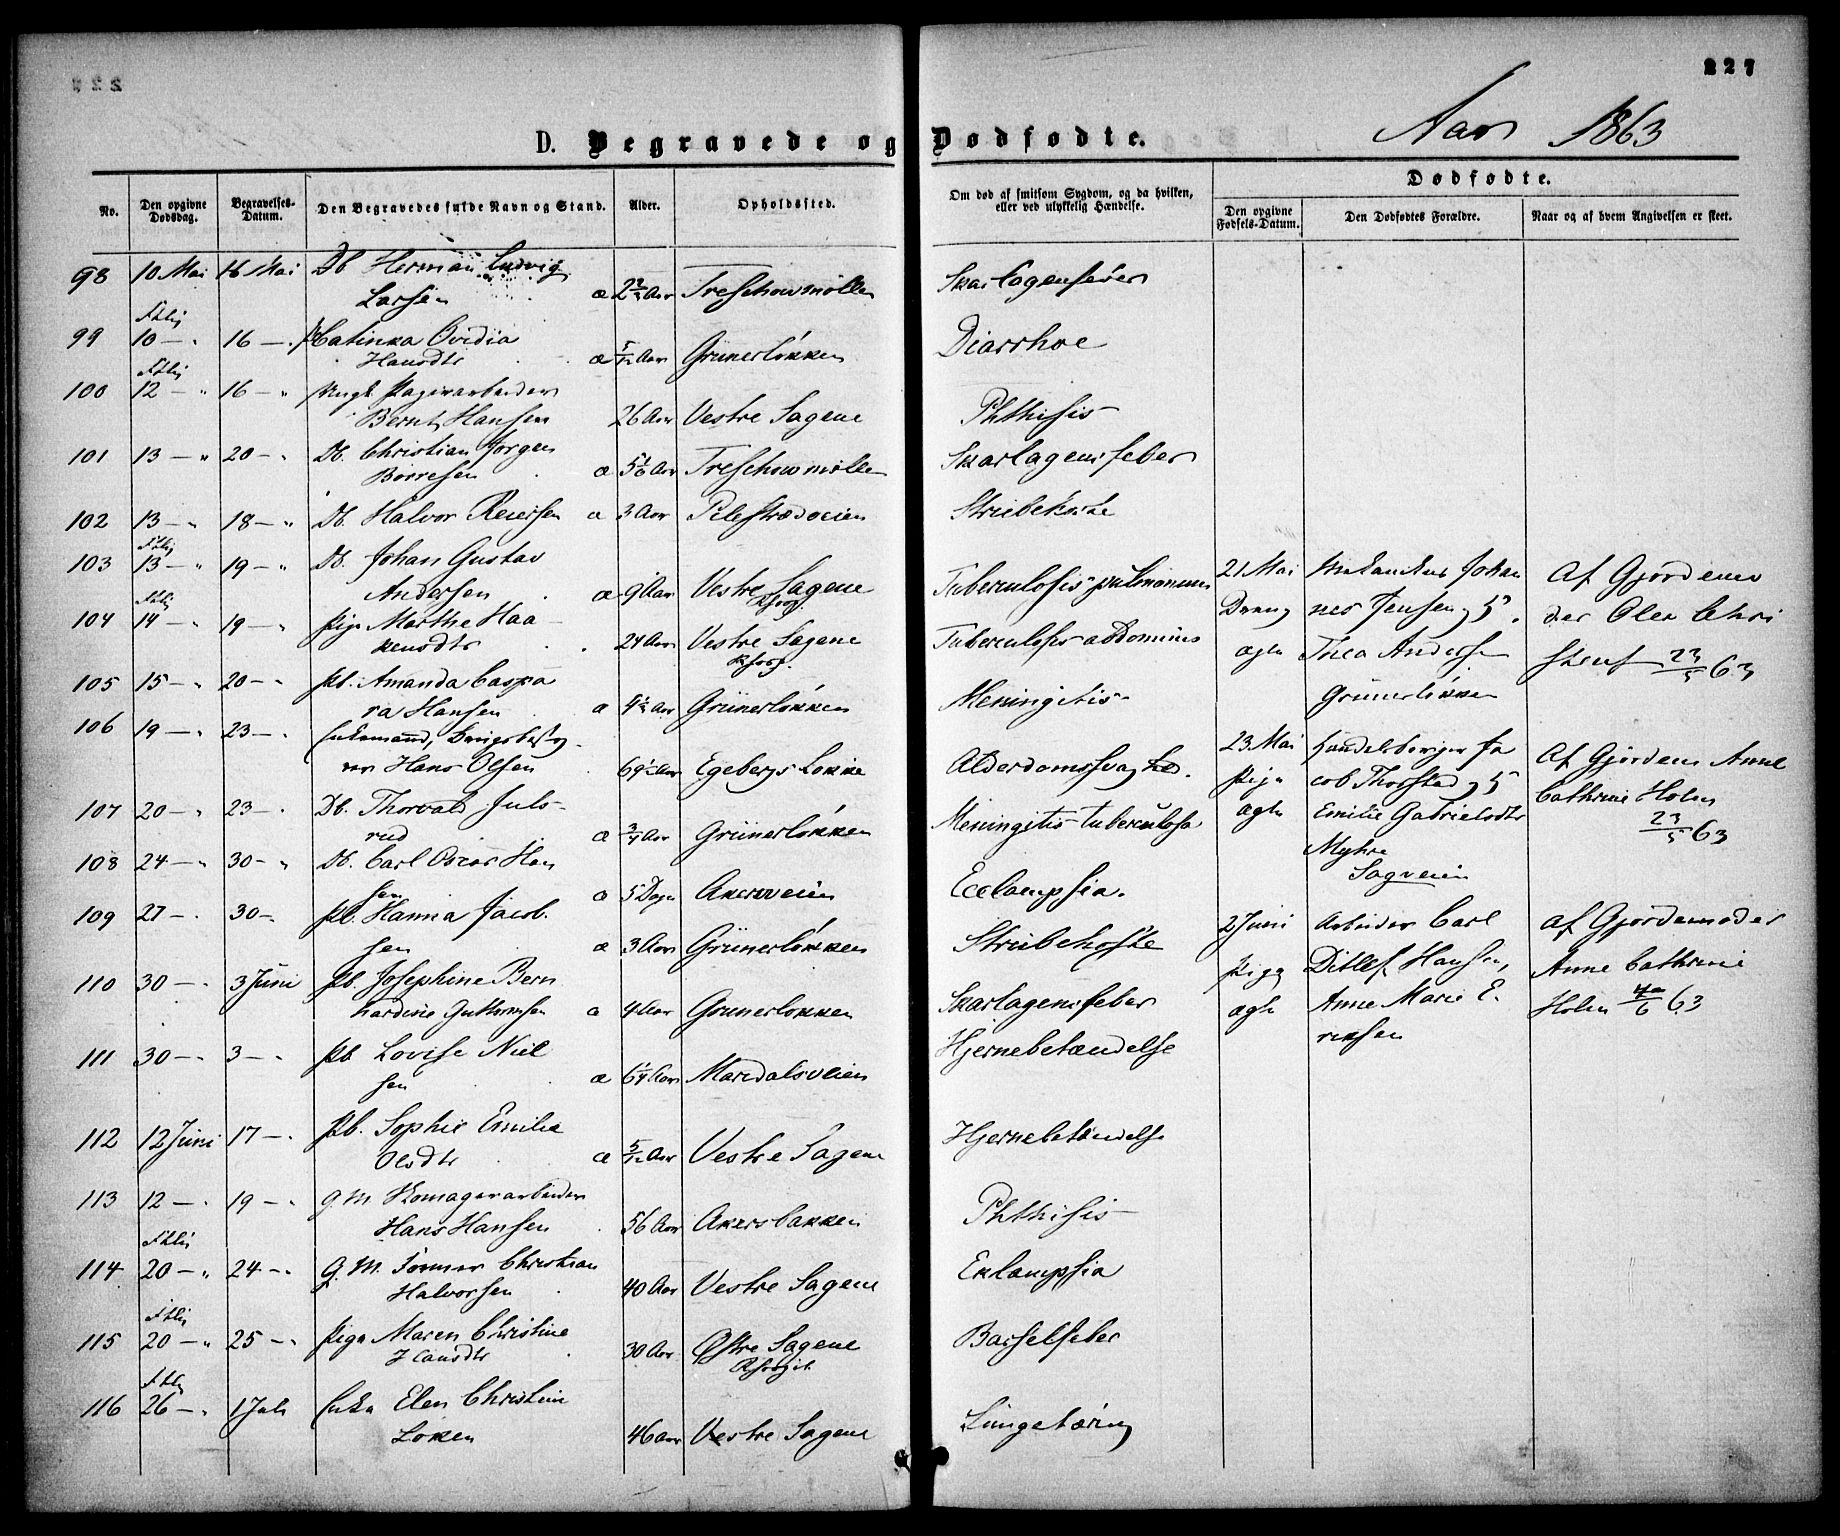 227
D. Begravede og Dødfødte.
Aar 1863
No.
Den opgivne Dødsdag.
Begravelses-Datum.
Den Begravedes fulde Navn og Stand.
Alder.
Opholdssted.
Om død af smitsom Sygdom, og da hvilken, eller ved ulykkelig Hændelse.
Dødfødte.
Den opgivne Fødsels-Datum.
Den Dødfødtes Forældre.
Naar og af hvem Angivelsen er skeet.
98 10 Mai 16 Mai Db. Herman Ludvig
Larsen æ 2 2/3 Aar Treschowmøllen Skarlagensfeber
99 10 — " 16 — " Pb Catinka Ovidia
Hansdtr æ 5/12 Aar Grünerløkken Diarrhoe
100 12 — " 16 — " Ungk Papirarbeider
Bernt Hansen 26 Aar Vestre Sagene Phthisis
101 13 — " 20 — " Db. Christian Jørgen
Børresen æ 5 1/6 Aar Treschowmøllen Skarlagensfeber
102 13 — " 18 — " Db. Halvor Reiersen æ 3 Aar Pilestrædveien Strubehoste
103 13 — " 19 — " Db. Johan Gustav
Andersen æ 9 Aar Vestre Sagene Tuberculosis pulmonum
104 14 — " 19 — " Pige Marthe Haa-
kensdtr 24 Aar Vestre Sagene Tuberculosis abdominis
105 15 — " 20 — " Pb. Amanda Caspa
ra Hansen æ 4 1/2 Aar Grünerløkken Meningitis
106 19 — " 23 — " Enkemand,
Hans Olsen 69 1/2 Aar Egebergs Løkke Alderdomssvaghed.
107 20 — " 23 — " Db. Thorvald Juls-
rud æ 3/4 Aar Grünerløkken Meningitis tuberculosa
108 24 — " 30 — " Db. Carl Oscar Han
sen æ 5 Dage Akersveien Ecclampsia.
109 27 — " 30 — Pb. Hanna Jacob-
sen æ 3 Aar Grünerløkken Strubehoste
110 30 — " 3 Juni Pb. Josephine Bern
hardine Guthormsen æ 4 Aar Grünerløkken Skarlagensfeber
111 30 — " 3 — " Pb Lovise Niel
sen æ 6 1/4 Aar Maridalsveien Hjernebetændelse
112 12 Juni 17 — " Pb. Sophie Emilie
Olsdtr æ 5/12 Aar Vestre Sagene Hjernebetændelse
113 12 — " 19 — " g M. Komagerarbeider
Hans Hansen 56 Aar Akersbakken Phthisis
114 20 — " 24 — " G. M. Tømmer Christian
Halvorsen 40 Aar Vestre Sagene Eklampsia
115 20 — " 25 — " Pige Maren Christine
Hansdtr 30 Aar Østre Sagene Barselfeber
116 26 — " 1 Juli Enke Elen Christine
Løken 46 aar Vestre Sagene Lungetæring
21 Mai
Dreng
ægte
Johan
nes Jensen og H.
Thea Anders
Grünerløkken
Af Gjordemo
der Olea Chri
stens 23/5 63
23 Mai
Pige
ægte
Handelsborger Ja
cob Thorstad og H
Emilie Gabrielsdtr
Myhre
Sagveien
Af Gjordem Anne
Cathrine Holm
23/5 63
2 Juni
Pige
ægte
Arbeider Carl
Ditlef Hansen,
Anne Marie E-
riksen
Af Gjordemoder
Anne Cathrine
Holm 63